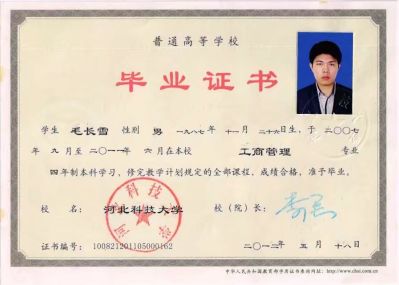 普通高等学校
毕业证书
学生 毛长雪 性别 男 一九八七年 十一月 二十六日生,于 二〇〇七
年 九 月至 二〇一一 年 六 月在本校 工商管理 专业
四 年制本科学习,修完教学计划规定的全部课程,成绩合格,准予毕业。
校 名: 河北科技大学 校(院)长:
证书编号: 100821201105000162 二〇一二年 五 月 十八日
中华人民共和国教育部学历证书查询网址:http://www.chsi.com.cn